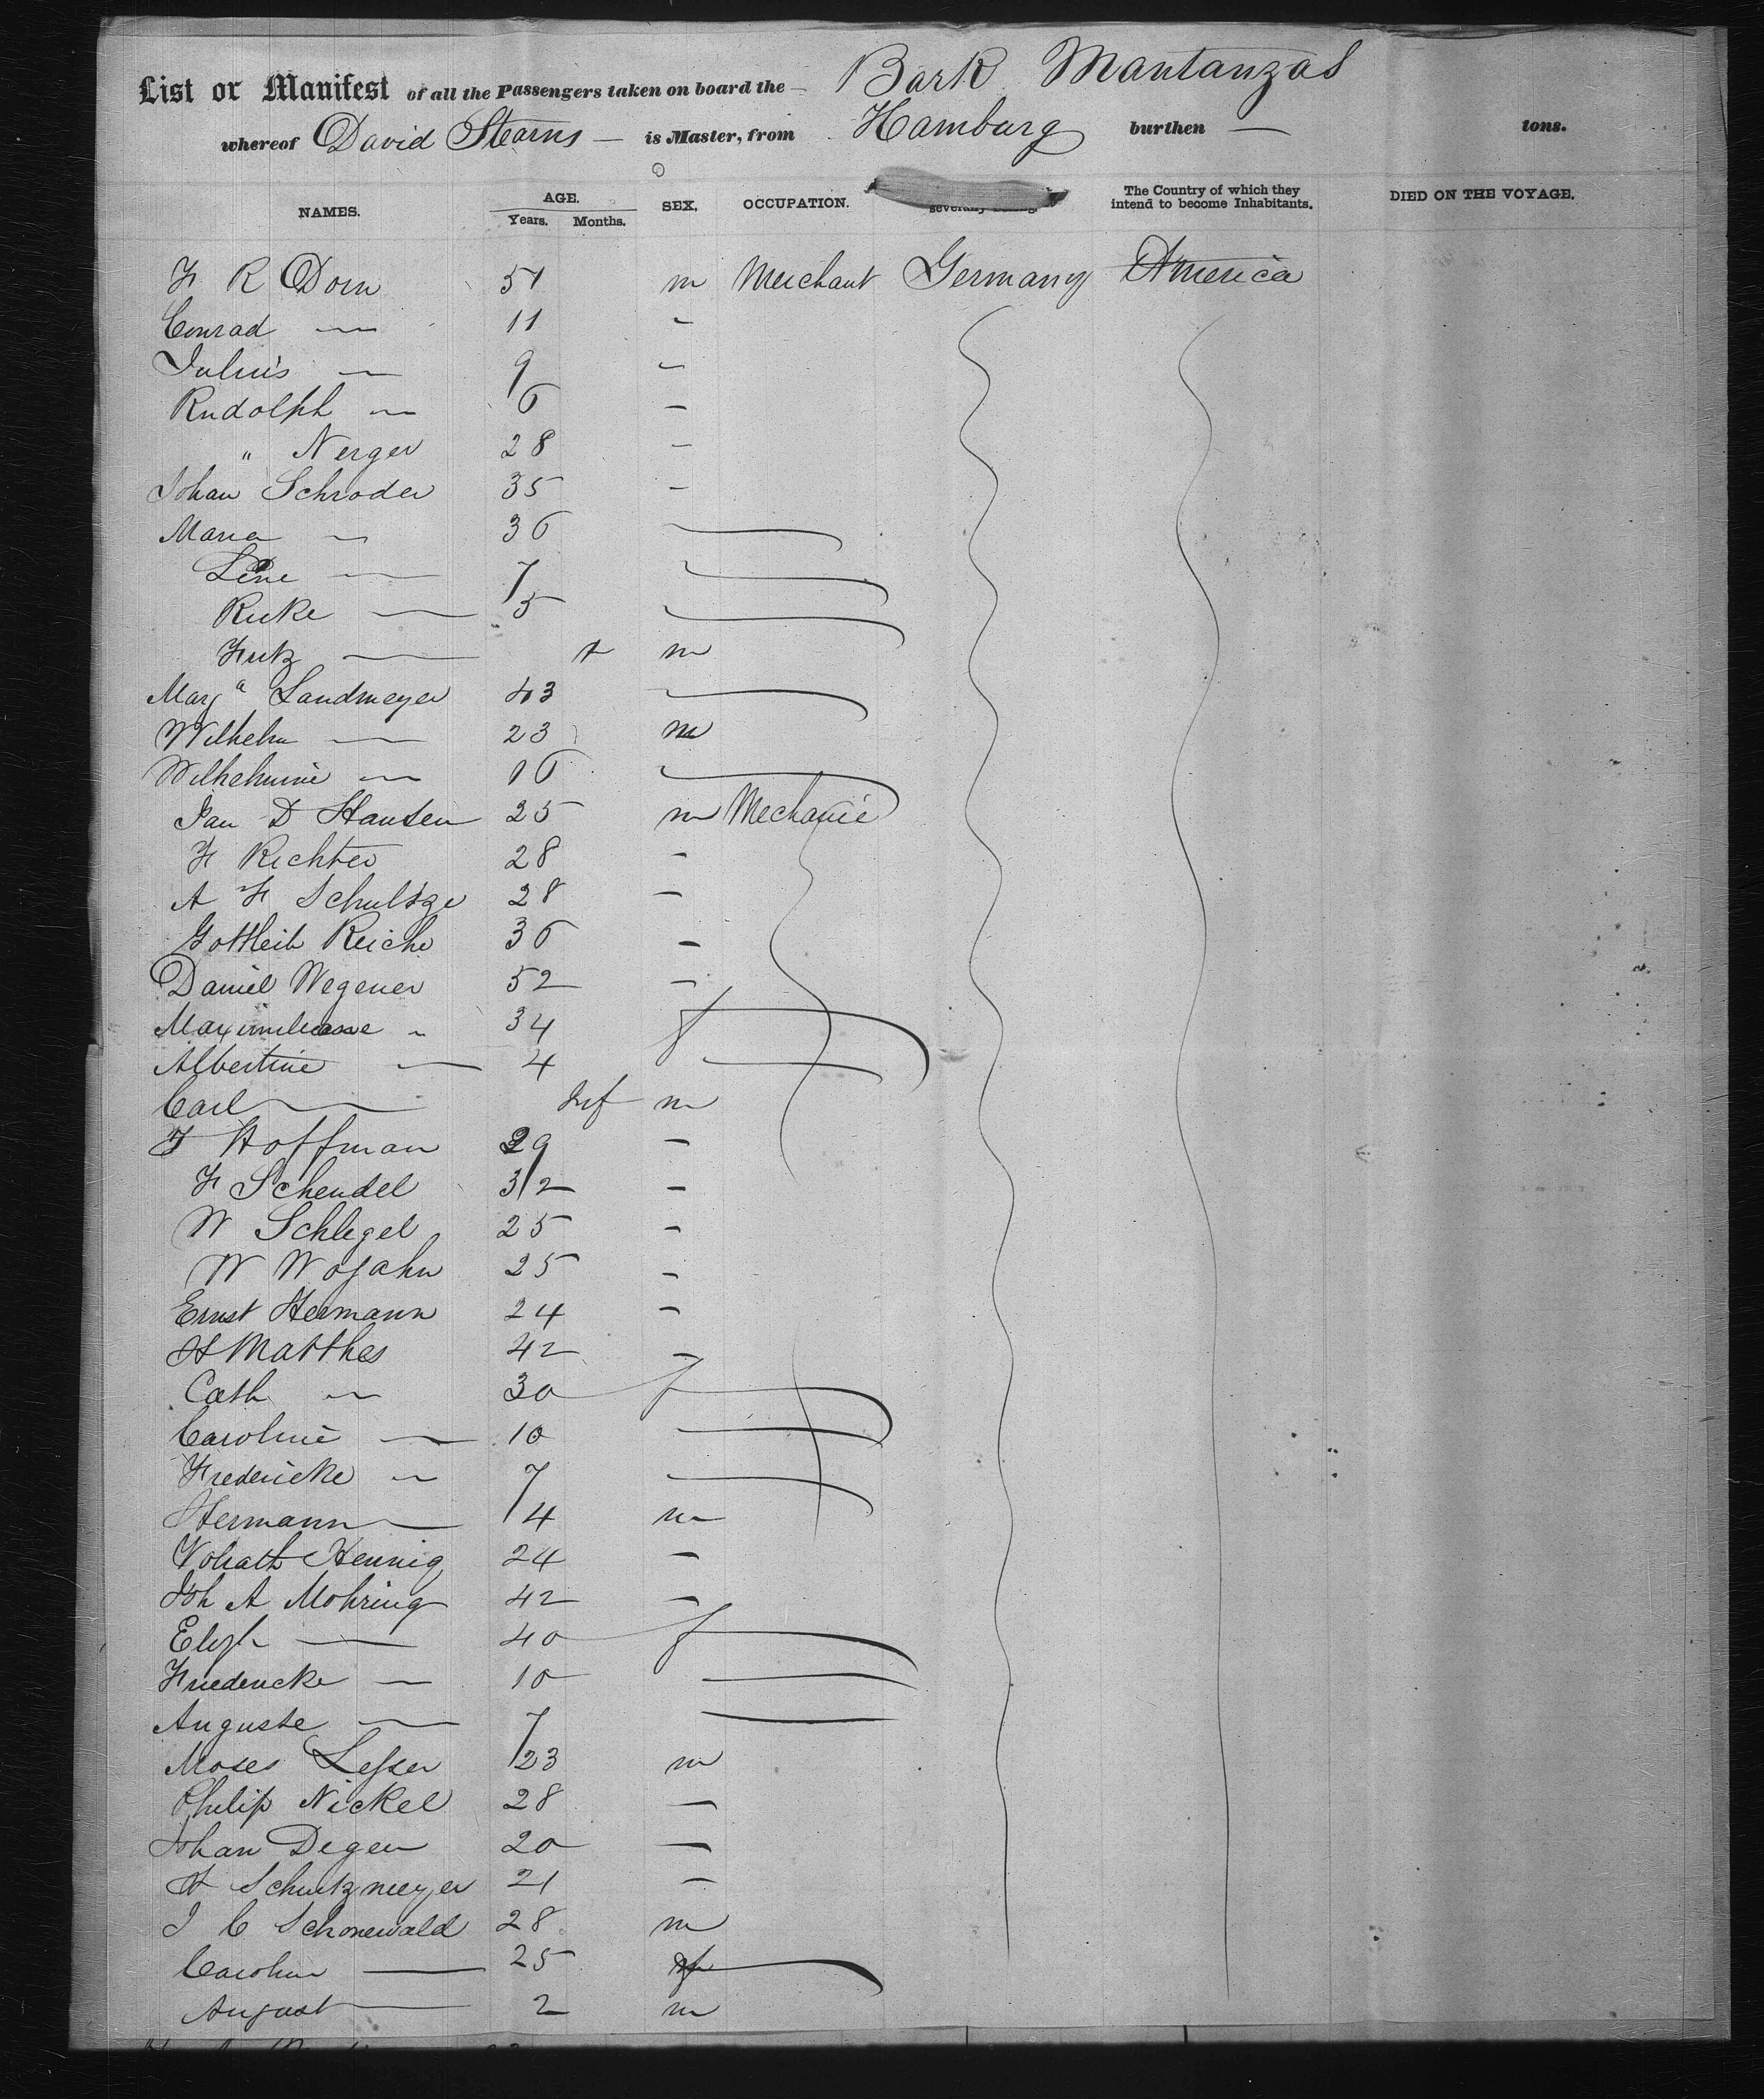 List or Manifest of all the Passengers taken on board the — Bark Mantanzas
whereof David Stearns — is Master, from Hamburg burthen — tons.
NAMES. AGE. Years. Months. SEX. OCCUPATION. The Country of which they intend to become Inhabitants. DIED ON THE VOYAGE.
F R Dorn 51 m Merchant Germany America
Conrad — 11 -
Julius — 9 -
Rudolph — 6 -
" Nerger 28 -
Johan Schroder 35 -
Maria — 36
Line — 7
Rieke — 5
Fritz — m
Marg a Landmeyer 43
Wilhelm — 23 m
Wilhelmine — 16
Jan D Hansen 25 m Mechanic
F Richter 28 -
A F Schultze 28 -
Gottleib Reiche 36 -
Daniel Wegener 52 -
Maximiliane " 34 f
Albertine — 4
Carl — Inf m
F Hoffman 29 -
F Schendel 32 -
W Schlegel 25 -
W Wojahn 25 -
Ernst Hermann 24 -
H Matthes 42 -
Cath — 30 f
Caroline — 10
Fredericke — 7
Hermann — 4 m
Volrath Hennig 24 -
Joh A Mohring 42 -
Elizh — 40 f
Friedericke — 10
Auguste — 7
Moses Lesser 23 m
Philip Nickel 28 -
Johan Degen 20 -
H Schutzmeyer 21 -
J C Schonewald 28 m
Carolin — 25 f
August — 2 m